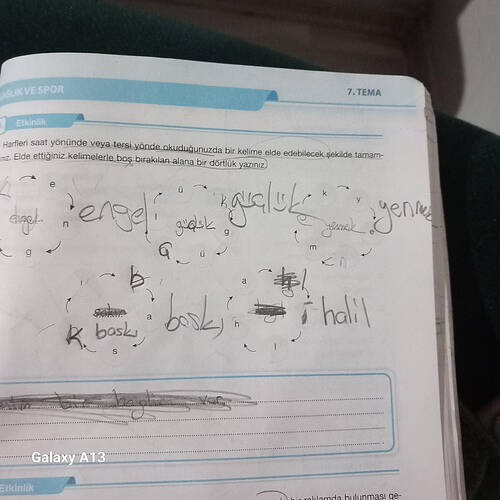 AĞLIK VE SPOR
7. TEMA
Etkinlik
Harfleri saat yönünde veya tersi yönde okuduğunuzda bir kelime elde edebilecek şekilde tamam-
nız. Elde ettiğiniz kelimelerle boş bırakılan alana bir dörtlük yazınız.
e n g
engel
engel
ü g ü G l
güçlük
güçlük
k y e n m
yemek
yenmek
b a s K ı
baskı
baskı
a l i l h
halil
Galaxy A13
Etkinlik
bir reklamda bulunması ge-